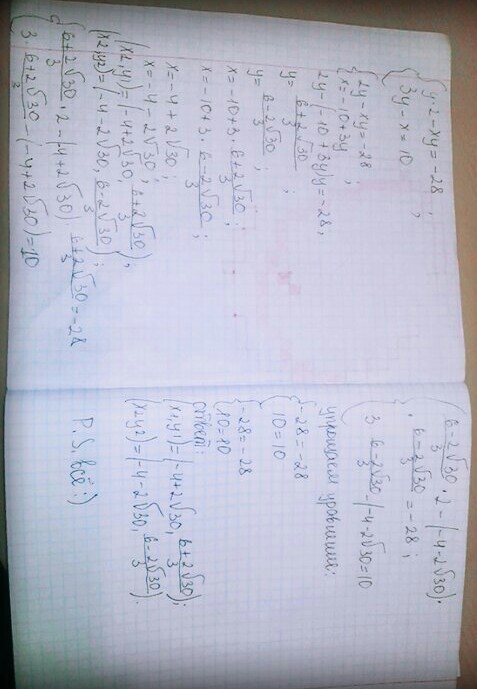 { y·2-xy=-28;
3y-x=10 ;
{ 2y-xy=-28;
x=-10+3y ;
2y-(-10+3y)y=-28;
y= 6+2√30/3 ;
y= 6-2√30/3 ;
x=-10+3· 6+2√30/3 ;
x=-10+3· 6-2√30/3 ;
x=-4+2√30;
x=-4-2√30;
(x2,y1)=(-4+2√30, 6+2√30/3);
(x2,y2)=(-4-2√30, 6-2√30/3);
{ 6+2√30/3 ·2-(-4+2√30) 6+2√30/3 =-28
3· 6+2√30/3 -(-4+2√30)=10
{ 6-2√30/3 ·2-(-4-2√30)·
· 6-2√30/3 =-28;
3 6-2√30/3 -(-4-2√30=10
упрощаем уровнения:
{ -28=-28
10=10
{ -28=-28
10=10
ответ:
(x1,y1)=(-4+2√30, 6+2√30/3);
(x2y2)=(-4-2√30, 6-2√30/3).
P.S. всё:)